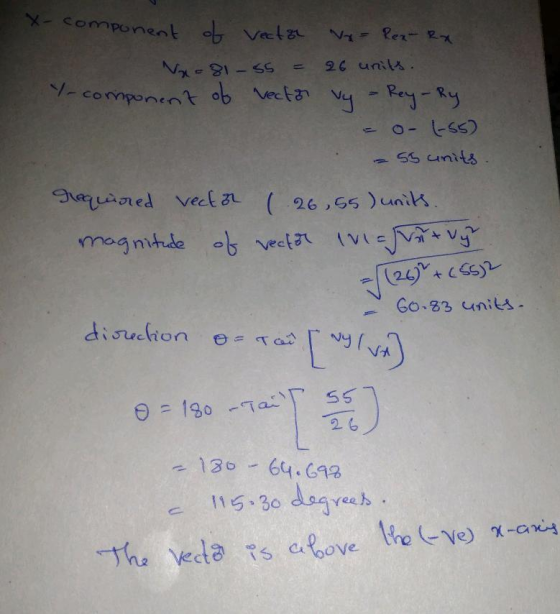 X-component of vector Vx = Rex - Rx
Vx = 81 - 55 = 26 units.
Y-component of vector Vy = Rey - Ry
= 0 - (-55)
= 55 units.
required vector (26, 55) units.
magnitude of vector |V| = √(Vx² + Vy²)
= √((26)² + (55)²)
= 60.83 units.
direction θ = Tan⁻¹ [Vy/Vx]
θ = 180 - Tan⁻¹ [55/26]
= 180 - 64.698
= 115.30 degrees.
The vector is above the (-ve) x-axis